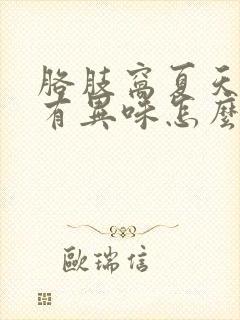 胳肢窩夏天
有異味怎麼
歐瑞信